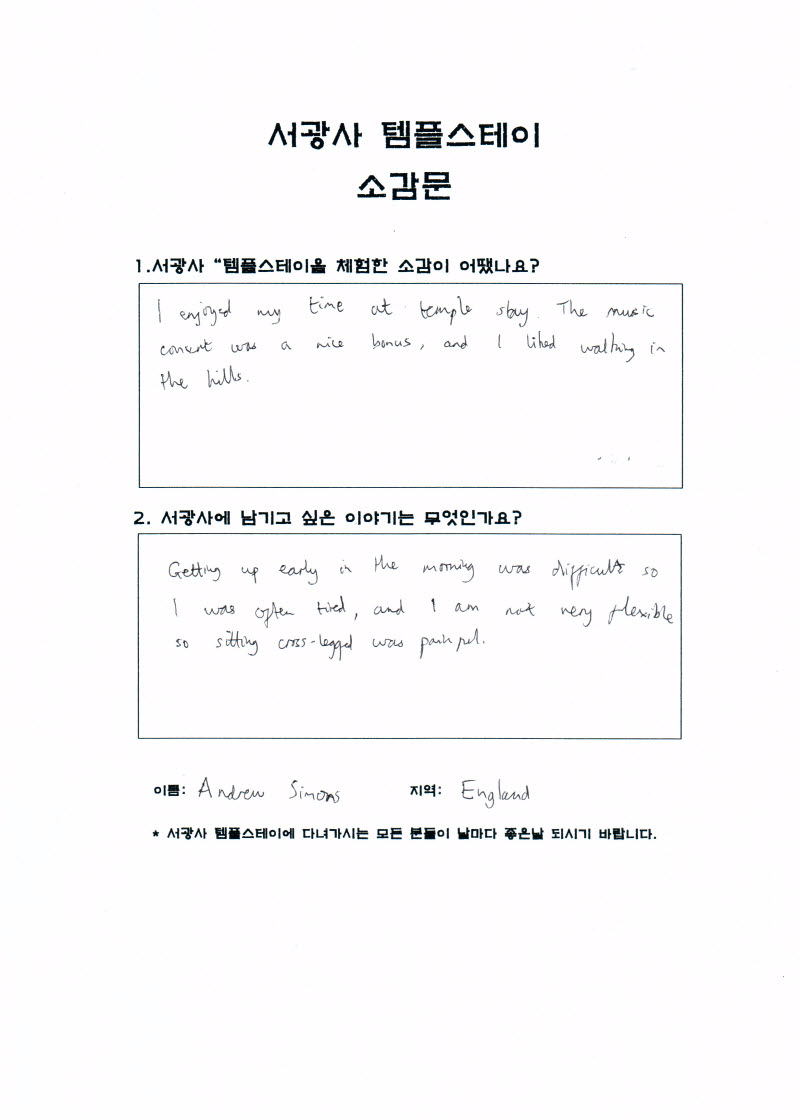 서광사 템플스테이
소감문
1.서광사 “템플스테이을 체험한 소감이 어땠나요?
I enjoyed my time at temple stay. The music
concert was a nice bonus, and I liked walking in
the hills.
2. 서광사에 남기고 싶은 이야기는 무엇인가요?
Getting up early in the morning was difficult so
I was often tired, and I am not very flexible
so sitting cross-legged was painful.
이름: Andrew Simons 지역: England
* 서광사 템플스테이에 다녀가시는 모든 분들이 날마다 좋은날 되시기 바랍니다.